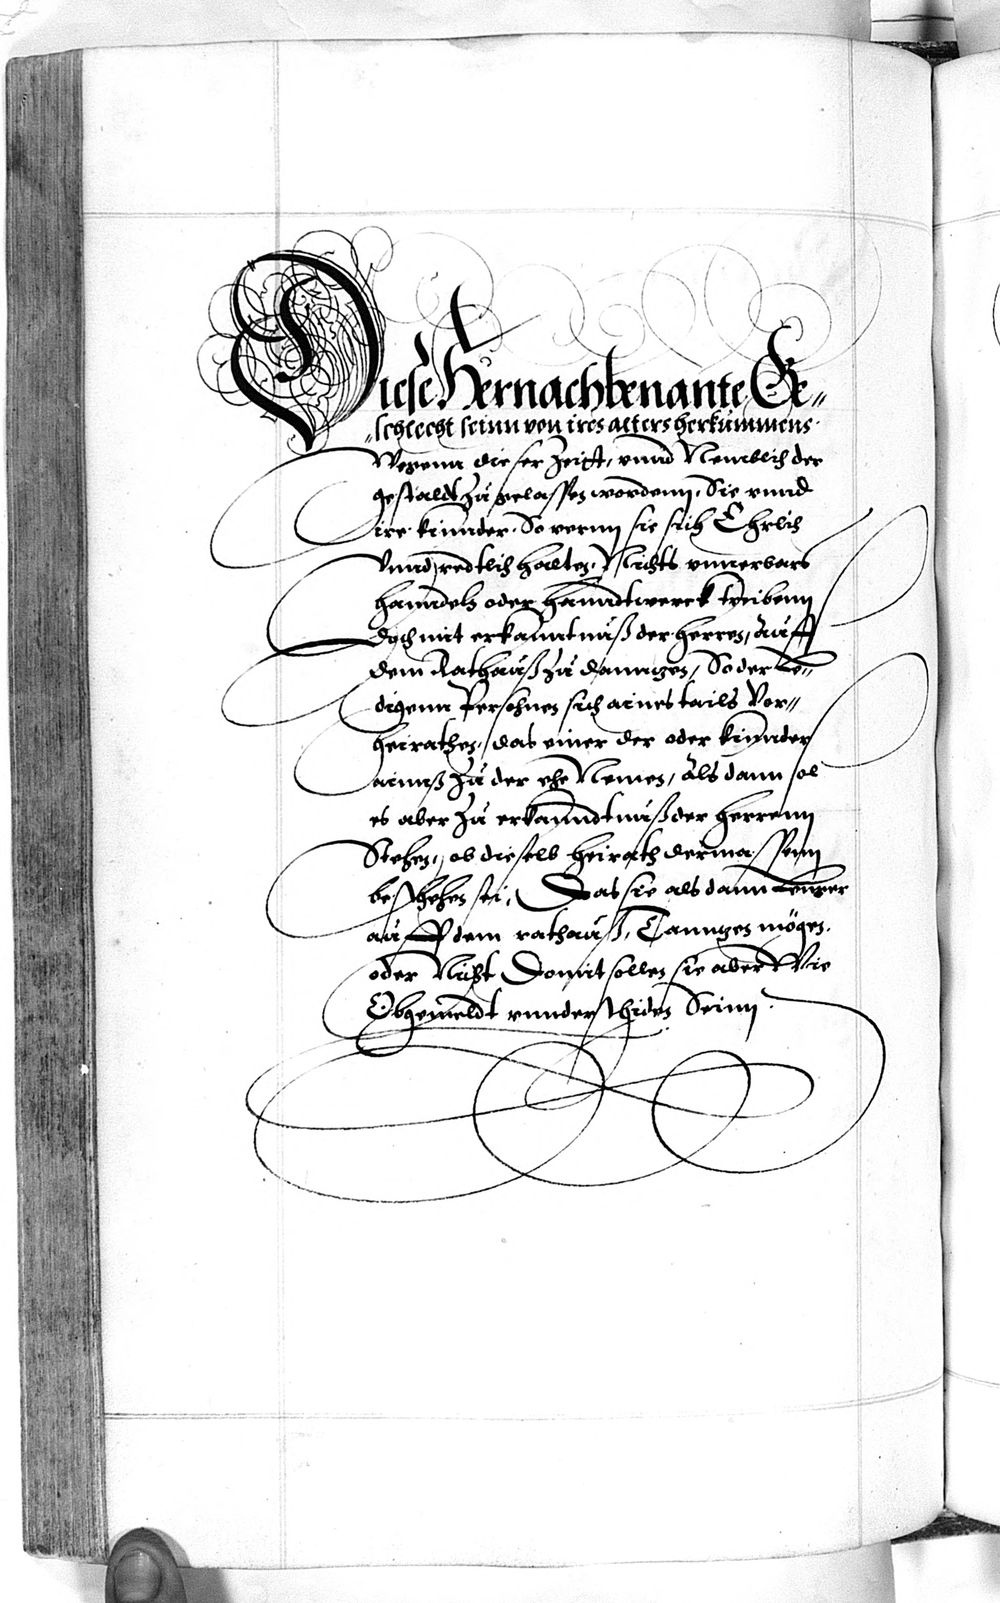 Diese Hernachbenante Ge„
„schlecht seinn von ires alters herkummens.
Wegenn dieser Zeitt, vnnd Nemblich der
gestaldt Zu gelassen wordenn, Sie vnnd
ire kinnder. So vernn sie sich Ehrlich
Vnnd redtlich halten, Nichts vnnerbars
hanndels oder hanndtwerck treibenn
doch mit erkanntnuß der herren, Auff
dem Rathauß Zu dannzen, So der Le„
digenn Persohnen sich aines tails Ver„
heirathen, das einer der oder kinnder
ainnß Zu der ehe Nemen, Als dann sol
es aber Zu erkanndtnuß der herrenn
Stehen, ob dieselb heirath dermassenn
beschehen sei, Das sie als dann Lennger
auff dem rathauß, Tannzen mögen,
oder Nicht Domit sollen sie aber Wie
Obgemeldt vnnderschiden Seinn.